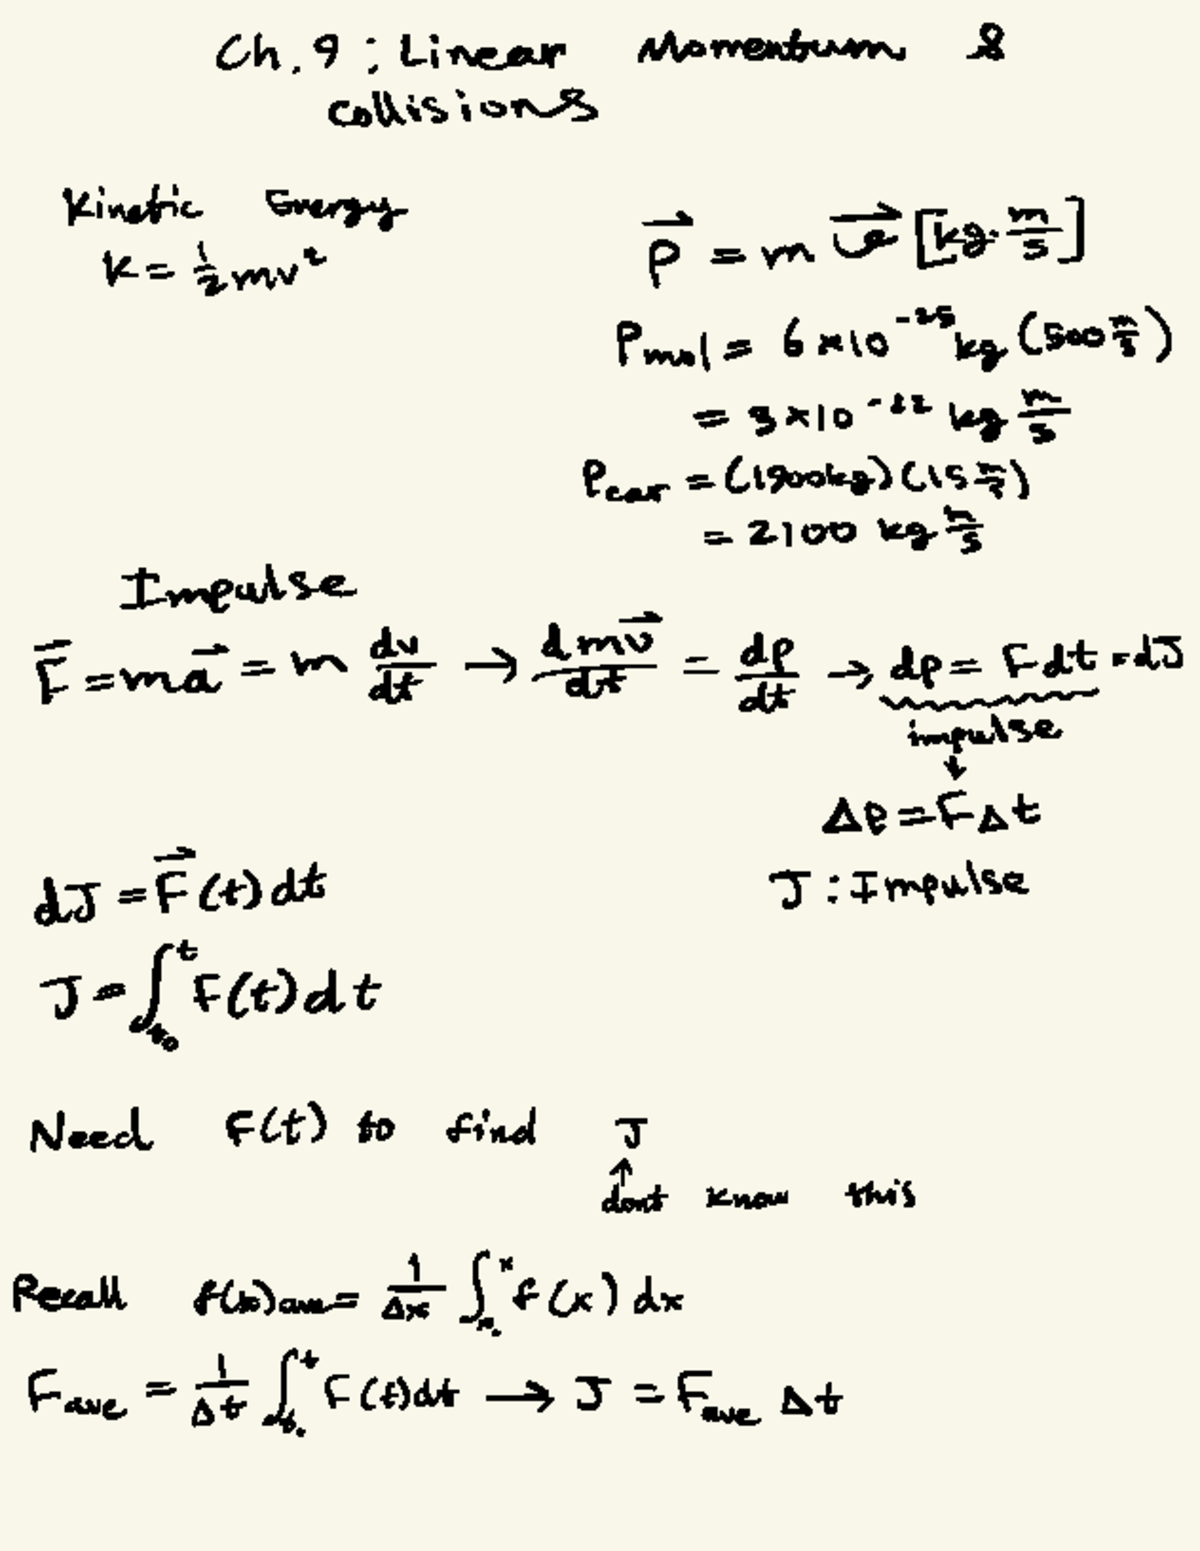 Ch. 9 : Linear Momentum &
collisions
Kinetic Energy
K = 1/2 mv²
p⃗ = m v⃗ [kg · m/s]
Pmol = 6 × 10⁻²⁵ kg (500 m/s)
= 3 × 10⁻²² kg m/s
Pcar = (1900kg) (15 m/s)
= 2100 kg m/s
Impulse
F⃗ = ma⃗ = m dv/dt → dmv⃗/dt = dp/dt → dp = Fdt = dJ
impulse
↓
Δp = FΔt
J : Impulse
dJ = F⃗(t) dt
J = ∫_{t₀}^{t} F(t) dt
Need F(t) to find J
↑
dont know this
Recall f(x)ave = 1/Δx ∫_{x₀}^{x} f(x) dx
Fave = 1/Δt ∫_{t₀}^{t} F(t)dt → J = Fave Δt